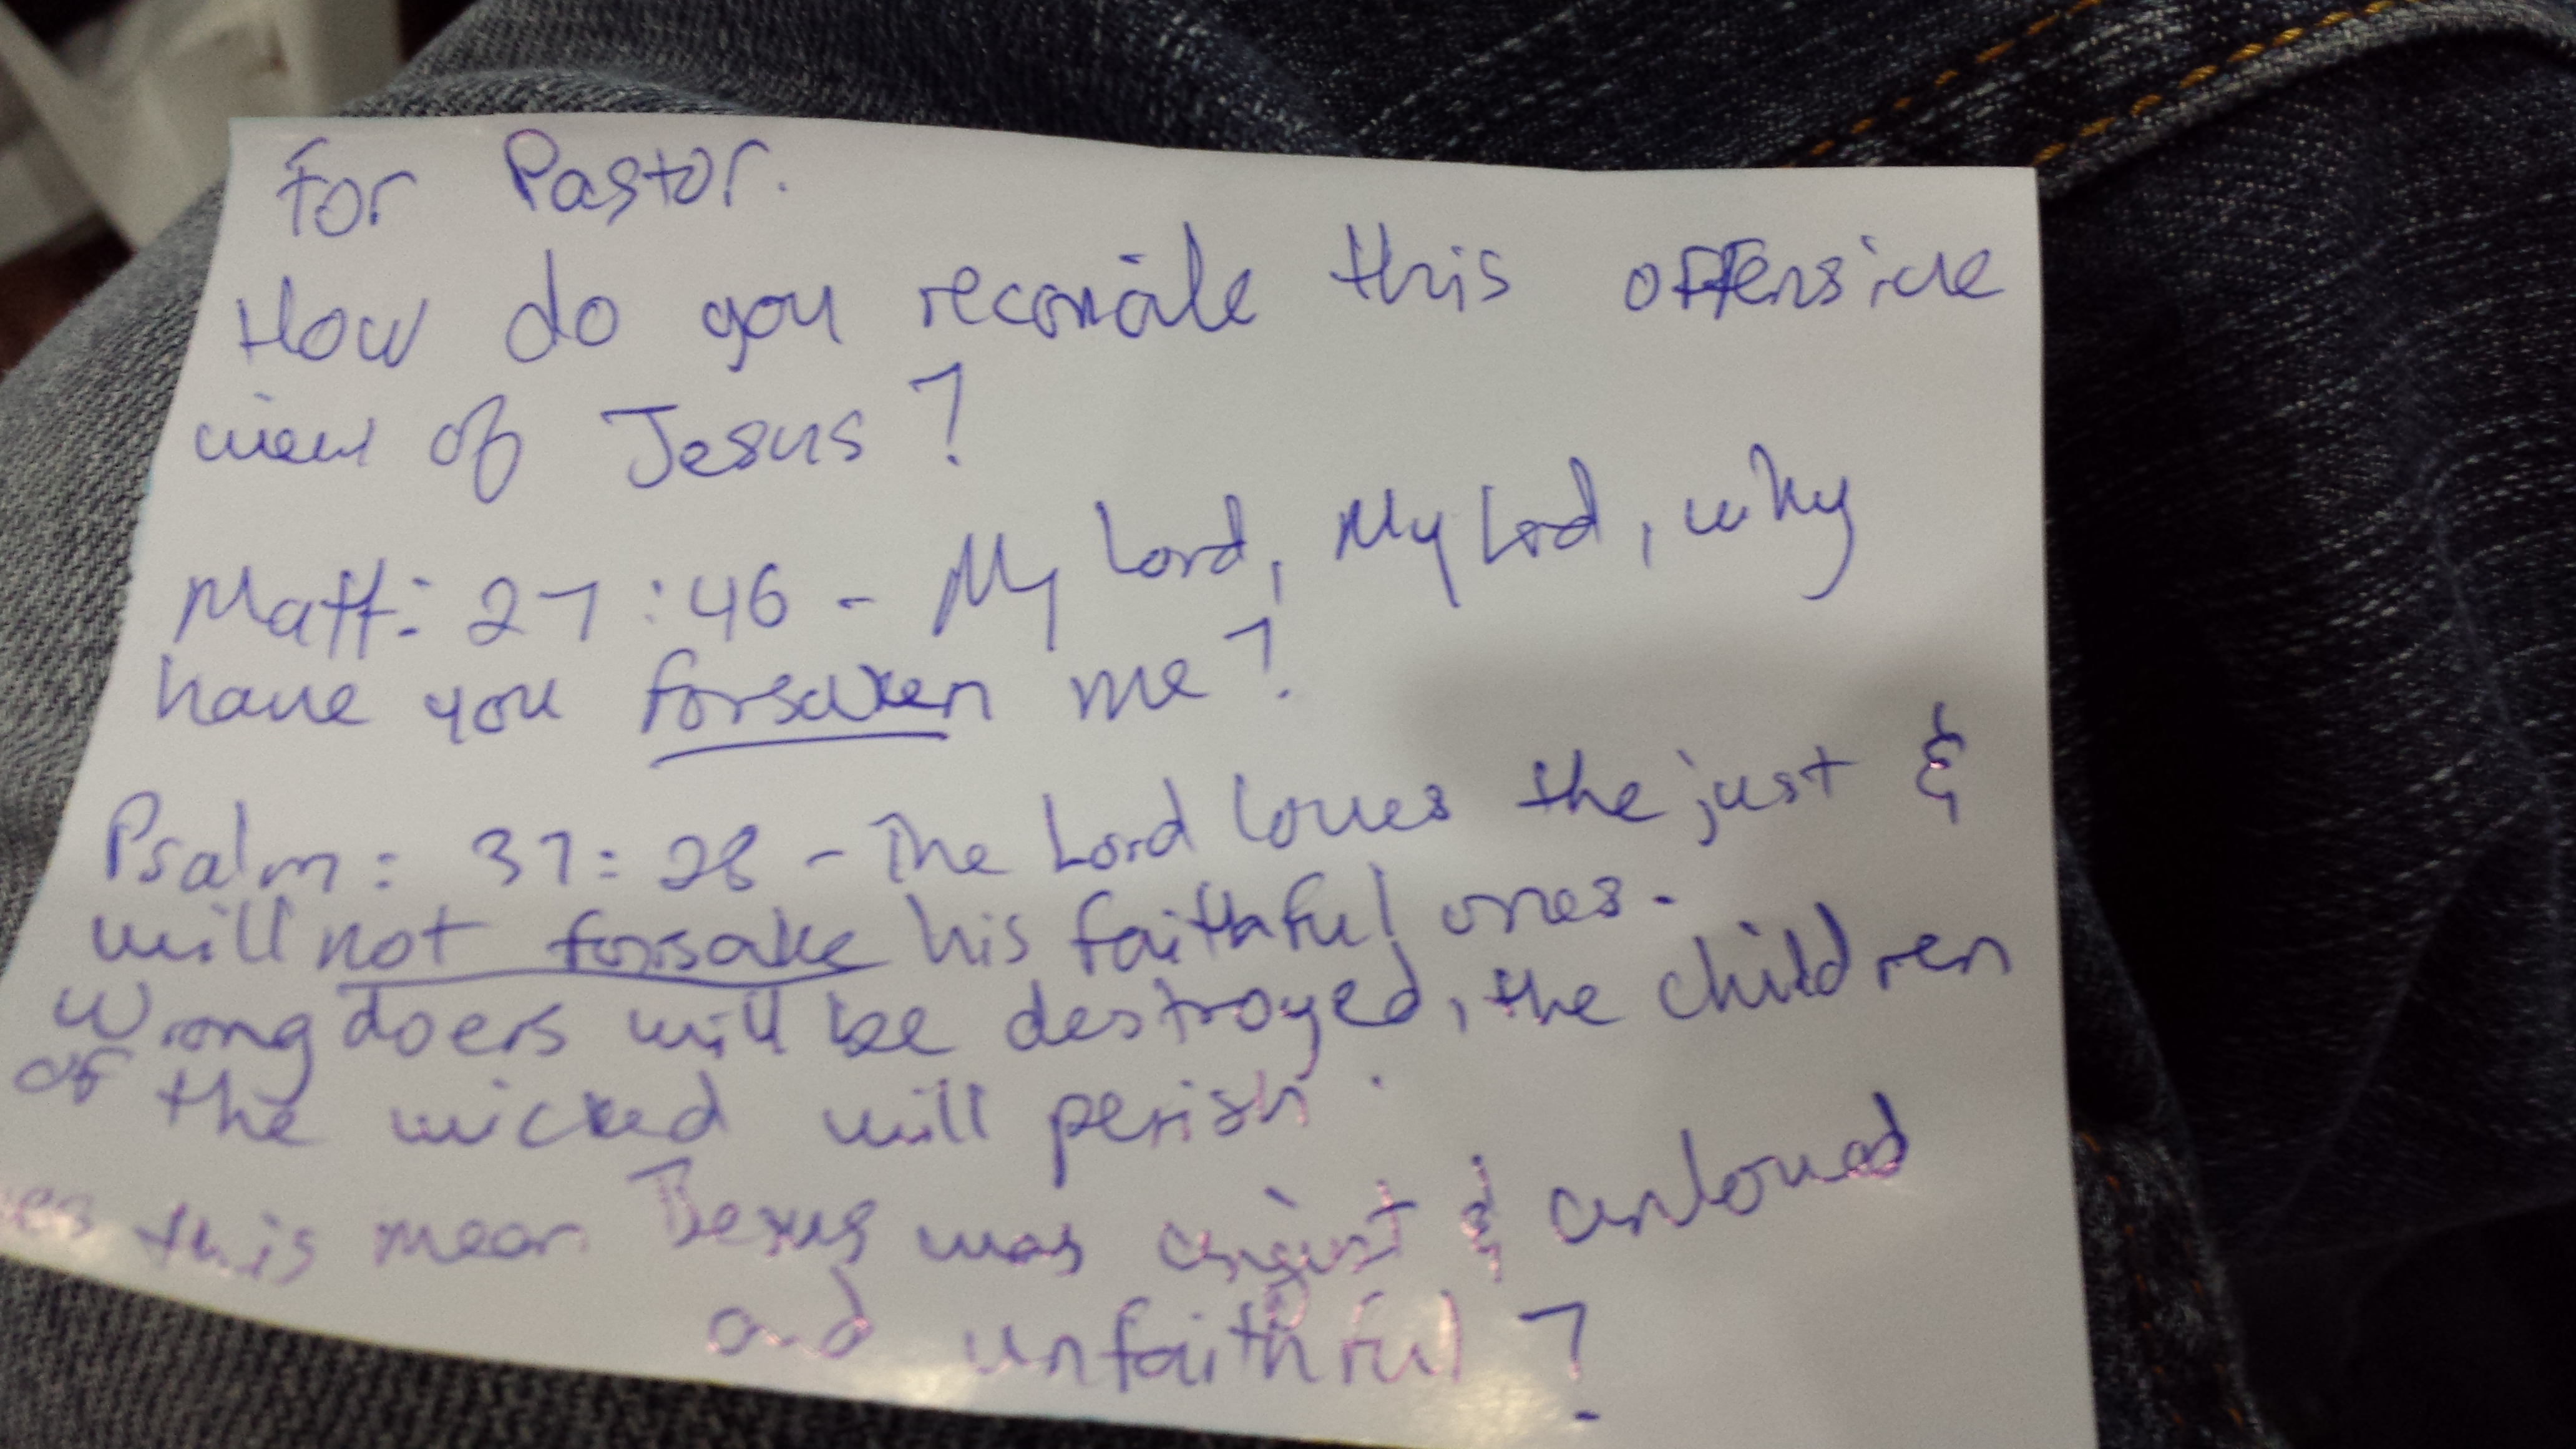 For Pastor.
How do you reconcile this offensive
view of Jesus?
Matt: 27:46 - My Lord, My Lord, why
have you forsaken me?
Psalm: 37:28 - The Lord loves the just &
will not forsake his faithful ones.
Wrongdoers will be destroyed, the children
of the wicked will perish.
es this mean Jesus was unjust & unloved
and unfaithful?